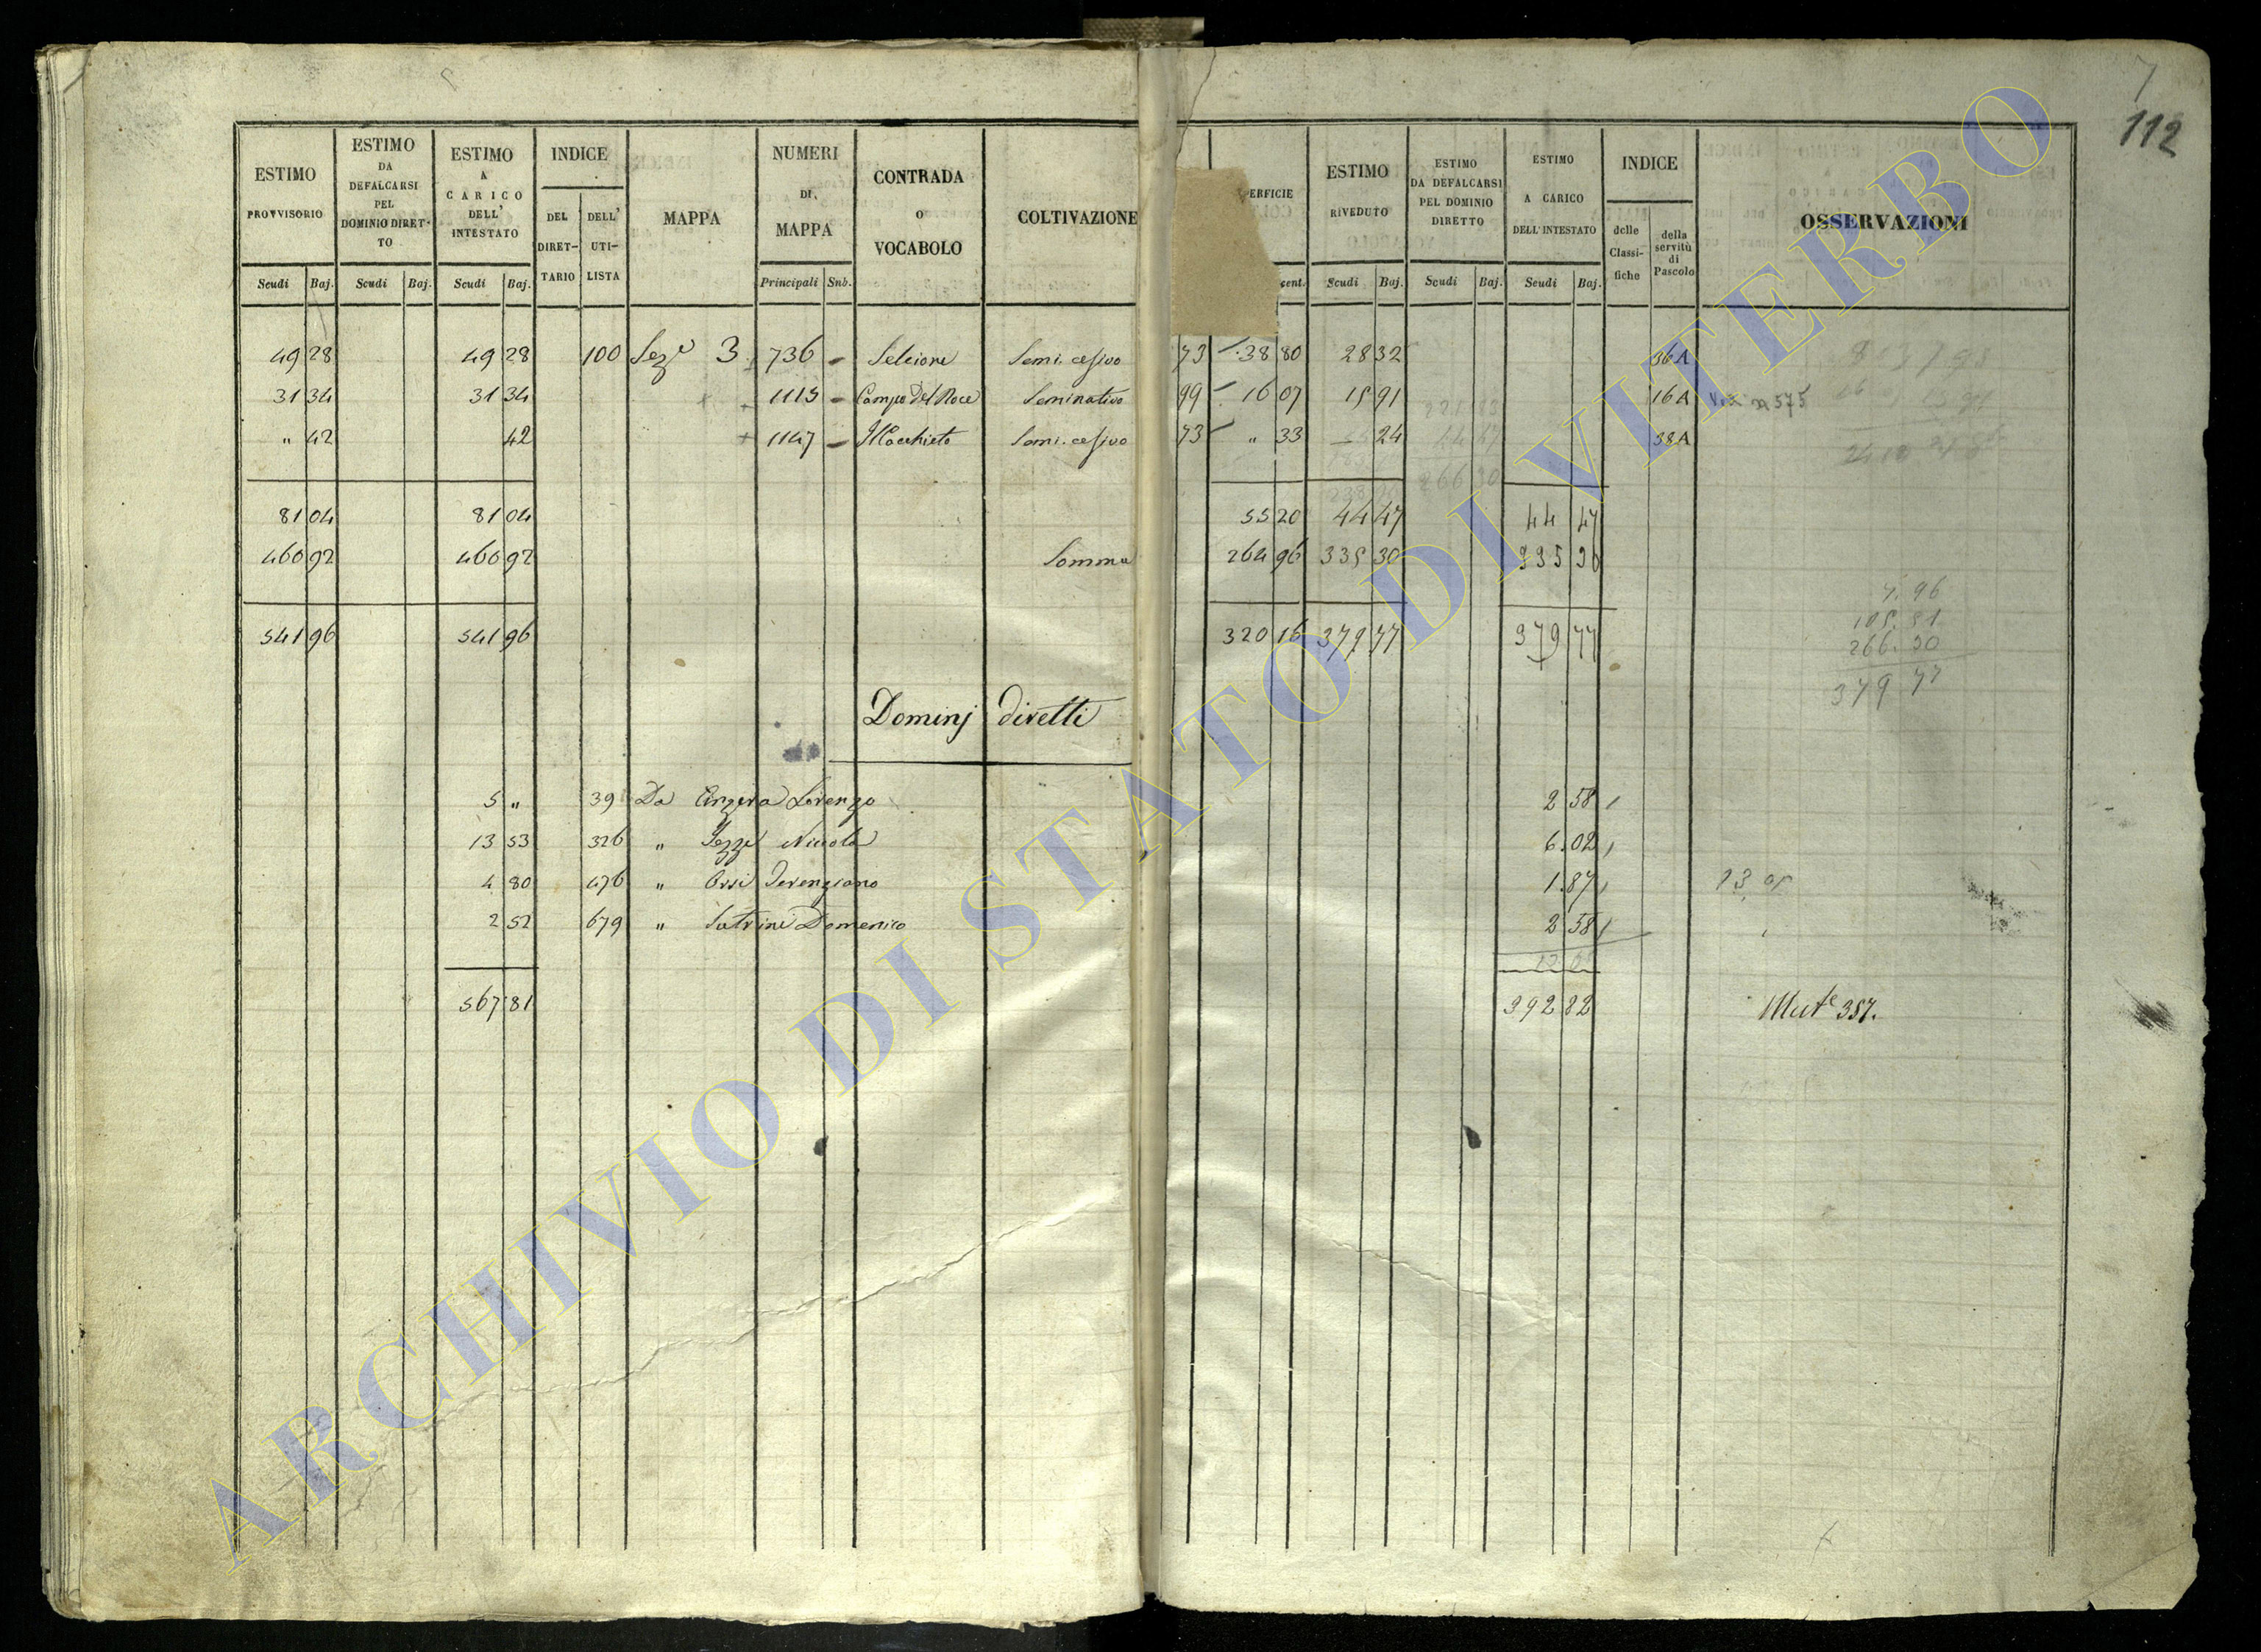 7
112
ESTIMO PROVVISORIO | ESTIMO DA DEFALCARSI PEL DOMINIO DIRETTO | ESTIMO A CARICO DELL' INTESTATO | INDICE | MAPPA | NUMERI DI MAPPA | CONTRADA O VOCABOLO | COLTIVAZIONE | ERFICIE | ESTIMO RIVEDUTO | ESTIMO DA DEFALCARSI PEL DOMINIO DIRETTO | ESTIMO A CARICO DELL' INTESTATO | INDICE | OSSERVAZIONI
DEL DIRETTARIO | DELL' UTILISTA | delle Classifiche | della servitù di Pascolo
Scudi | Baj. | Scudi | Baj. | Scudi | Baj. | Principali | Sub. | cent. | Scudi | Baj. | Scudi | Baj. | Scudi | Baj.
49 28 | 49 28 | 100 | Sez.e 3 | 736 | Selcione | Semi. cesivo | 73 | 38 80 | 28 32 | 36A
31 34 | 31 34 | 1113 | Campo Del Noce | Seminativo | 99 | 16 07 | 15 91 | 16A | 575
" 42 | 42 | 1147 | Macchieto | Semi. cesivo | 73 | " 33 | 24 | 38A
81 04 | 81 04 | 55 20 | 44 47 | 44 47
460 92 | 460 92 | Somma | 264 96 | 335 30 | 335 30
541 96 | 541 96 | 320 16 | 379 77 | 379 77
7. 96
105. 51
266. 30
379 77
Dominj diretti
5 " | 39 | Da Lorenzo | 2 58
13 53 | 326 | " Pezzi Nicola | 6.02
4 80 | 476 | " Orsi Terenziano | 1.87 | 13 05
2 52 | 679 | " Sutrini Domenico | 2 58
567 81 | 392 82 | Mut.e 357.
ARCHIVIO DI STATO DI VITERBO